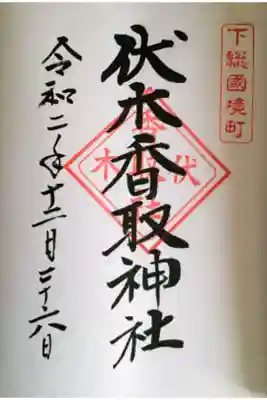 下総國境町
伏木香取神社
令和二年十二月二十六日